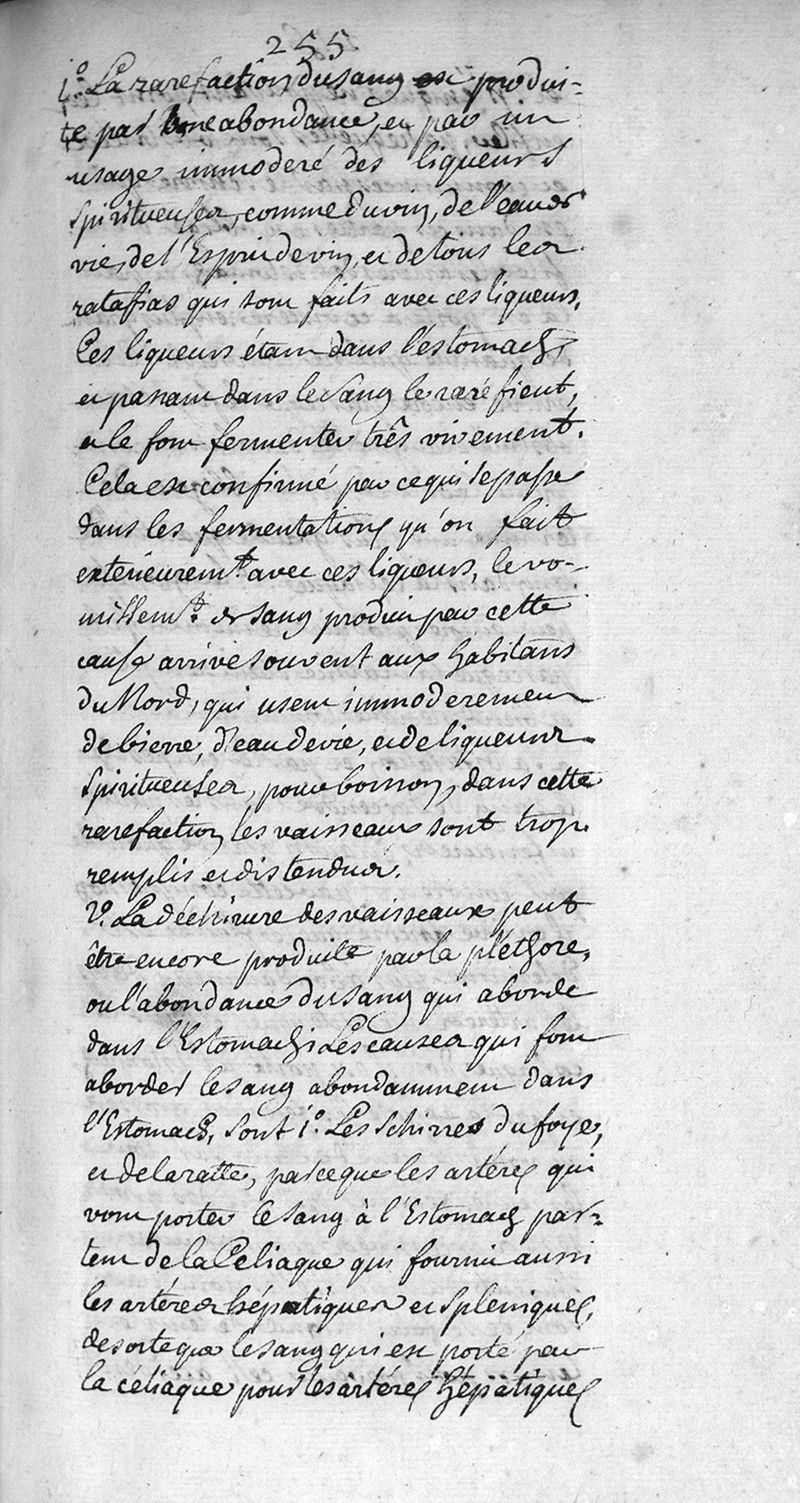 255.
1.° La rarefaction du sang est produi-
te par une abondance, et par un
usage immoderé des liqueurs
spiritueuses, comme du vin, de l'eau de
vie, de l'Esprit de vin, et de tous les
ratafias qui sont faits avec ces liqueurs.
Ces liqueurs étant dans l'éstomach,
et passant dans le sang le raréfient,
et le font fermenter três vivement.
Cela est confirmé par ce qui se passe
dans les fermentations qu'on fait
exterieurem.t avec ces liqueurs, le vo-
missem.t de sang produit par cette
cause arrive souvent aux habitans
du Nord, qui usent immoderement
de bierre, d'eau de vie, et de liqueurs
spiritueuses, pour boisson, dans cette
rarefaction les vaisseaux sont trop
remplis et distendus.
2.° La déchirure des vaisseaux peut
être encore produite par la pléthore,
ou l'abondance du sang qui aborde
dans l'Estomach; Les causes qui font
aborder le sang abondamment dans
l'Estomach, sont 1.° Les schirres du foye,
et de la ratte, parceque les artéres qui
vont porter le sang à l'Estomach par-
tent de la Celiaque qui fournit aussi
les artéres hépatiques et spleniques,
de sorte que le sang qui est porté par
la céliaque pour les artéres hépatiques